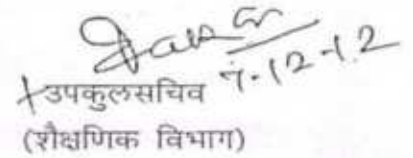 7-12-12
उपकुलसचिव
(शैक्षणिक विभाग)